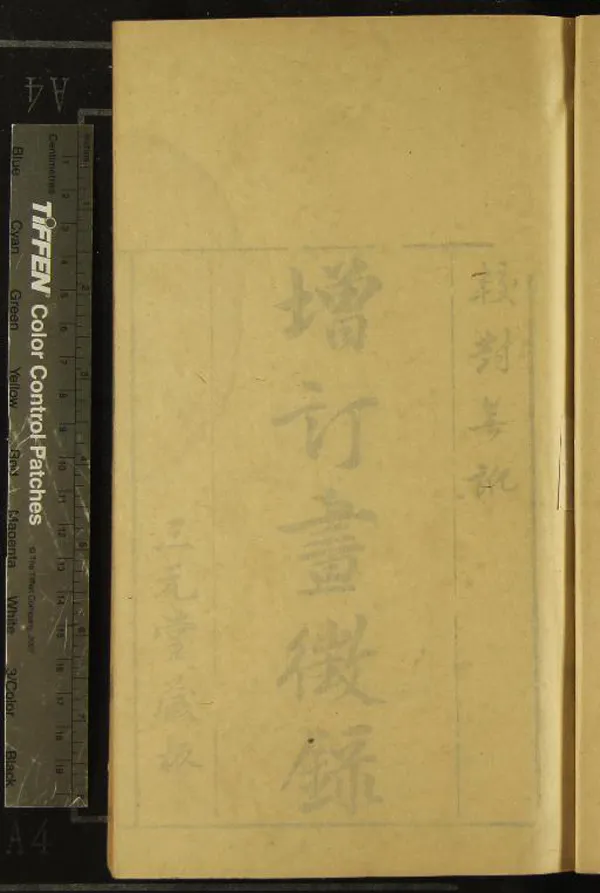 較對無訛
增訂畫徵錄
三元堂藏板
A4
inches
Centimetres
TIFFEN Color Control Patches
© The Tiffen Company, 2007
Blue Cyan Green Yellow Red Magenta White 3/Color Black
A4